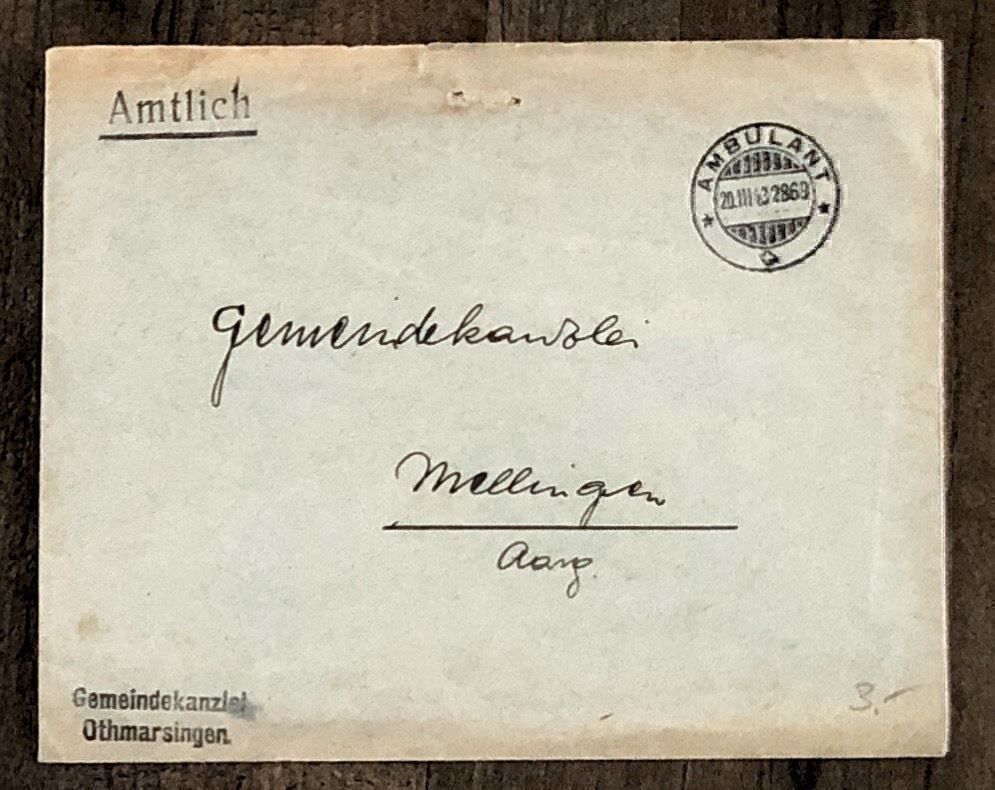 Amtlich
AMBULANT
20.III 43 2869
Gemeindekanzlei
Mellingen
Aarg.
Gemeindekanzlei
Othmarsingen.
3.-